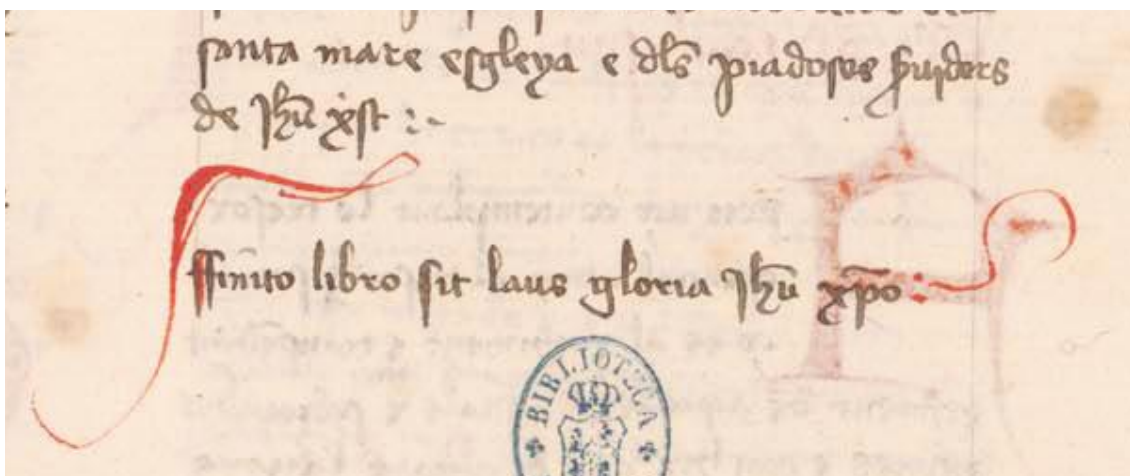 santa mare esgleya e dls̄ piadoses s̄uidors
de Jhū xp̄st :~
ffinito libro sit laus gloria Jhū xp̄o :
BIBLIOTECA